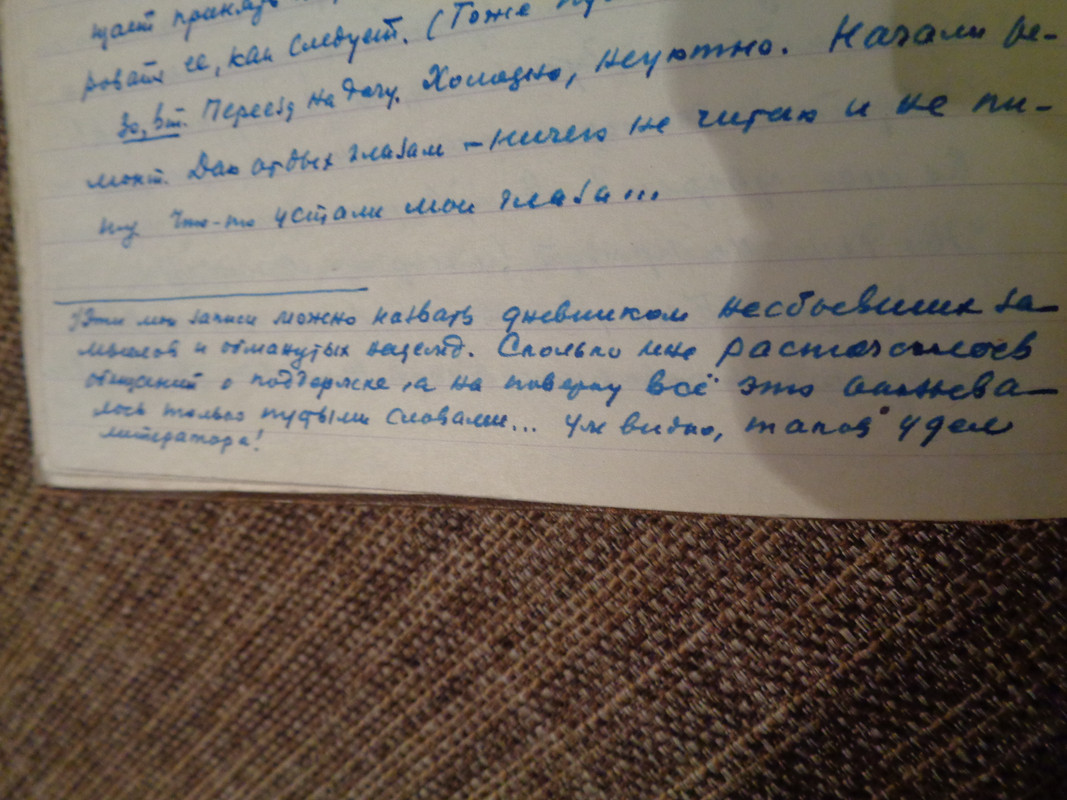 щает принять
ровать ее, как следует. (Тоже
30, Вт. Переезд на дачу. Холодно, неуютно. Начали ре-
монт. Даю отдых глазам – ничего не читаю и не пи-
шу. Что-то устали мои глаза...
Эти мои записи можно назвать дневником несбывшихся за-
мыслов и обманутых надежд. Сколько мне расточалось
обещаний о поддержке, а на поверку всё это оказыва-
лось только пустыми словами... Уж видно, таков удел
литератора!